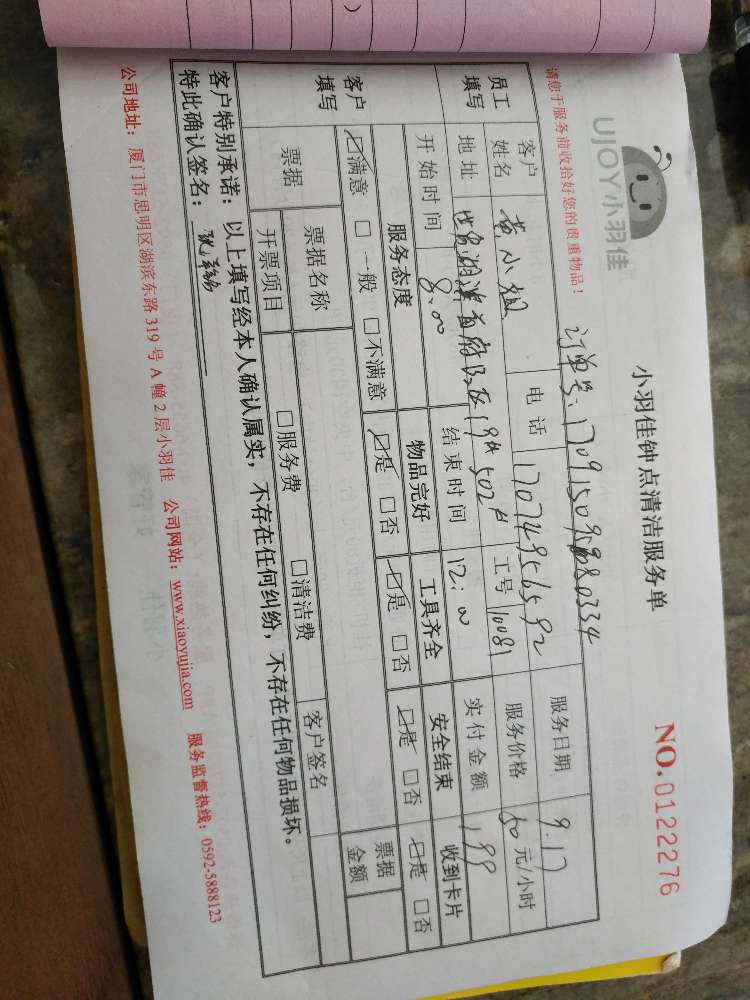 UJOY小羽佳
小羽佳钟点清洁服务单
NO.0122276
请您于服务前收拾好您的贵重物品!
订单号:
员工填写
客户姓名 黄小姐 电话 服务日期 9.17
地址 502 工号 10081 服务价格 元/小时
开始时间 8:00 结束时间 12:00 实付金额 199
客户填写
服务态度 物品完好 工具齐全 安全结束 收到卡片
满意 一般 不满意 是 否 是 否 是 否 是 否
票据 票据名称 客户签名 票据金额
开票项目 服务费 清洁费
客户特别承诺:以上填写经本人确认属实,不存在任何纠纷,不存在任何物品损坏。
特此确认签名:
公司地址:厦门市思明区湖滨东路 319 号 A 幢 2 层小羽佳 公司网站:www.xiaoyujia.com 服务监督热线:0592-5888123